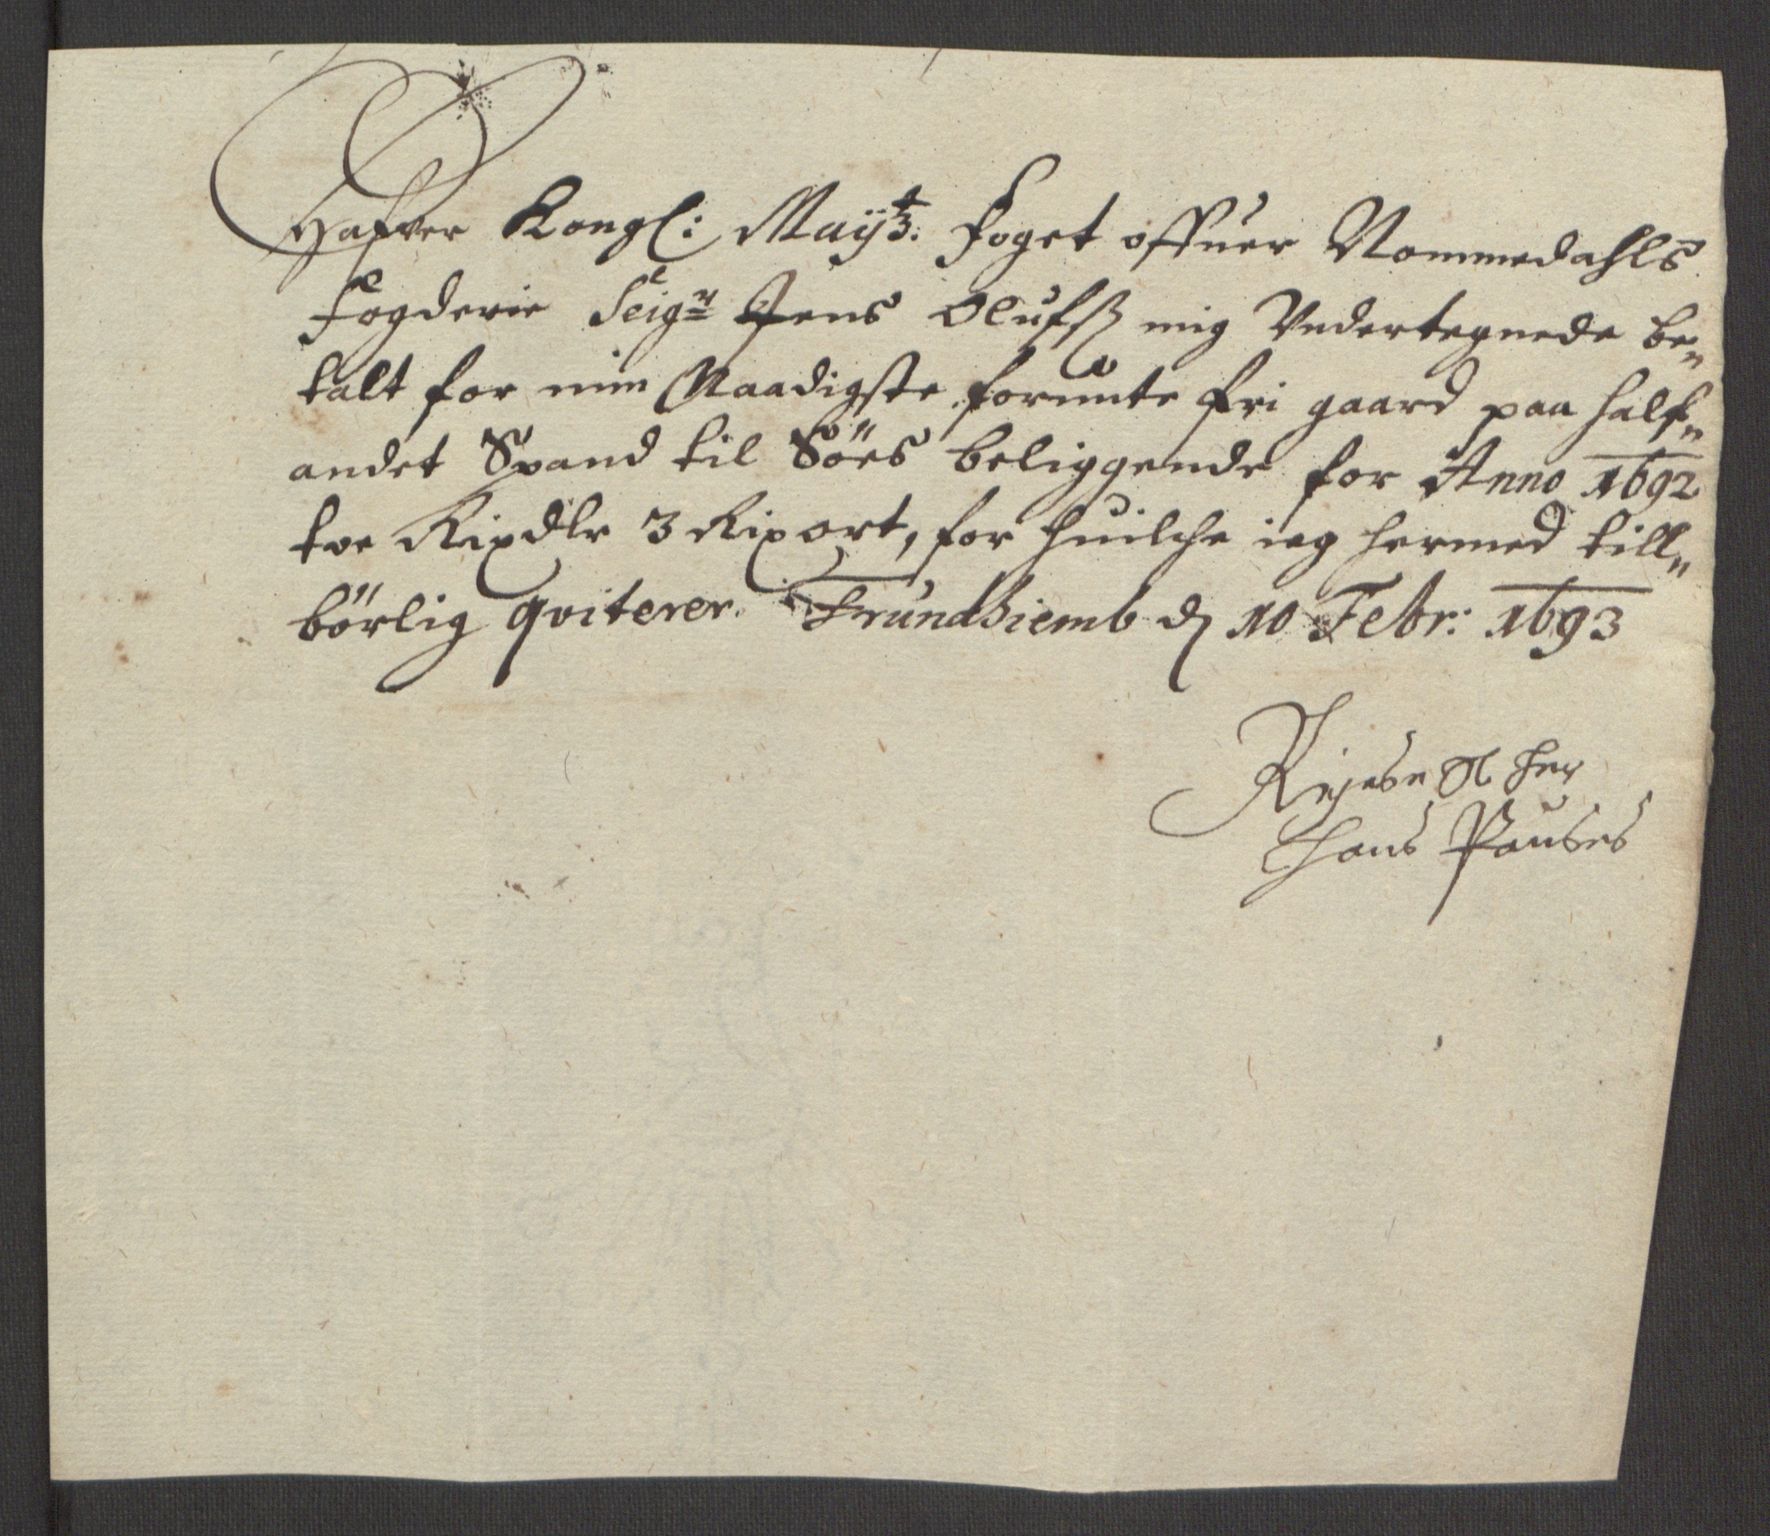 Hafver Kongl: Maÿtz. Foget offuer Nommedahls
Fogderie Seigr Jens Olufß mig Vndertegnede be„
talt for min Naadigste forunte fri gaard paa half„
andet Spand til Söes beliggende for Anno 1692
toe Rixdlr 3 Rixort, for huilche ieg hermed till„
börlig qviterer. Trundhiemb d 10 Febr: 1693
Hans